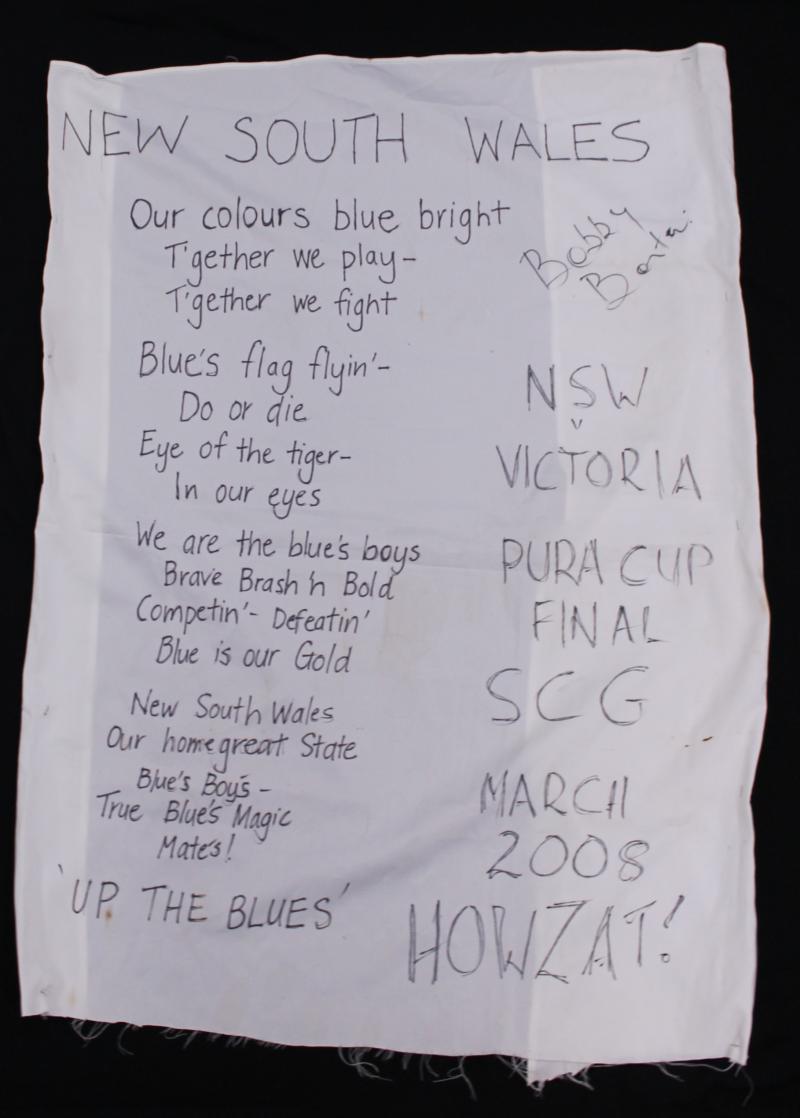 NEW SOUTH WALES
Our colours blue bright
T'gether we play-
T'gether we fight
Blue's flag flyin'-
Do or die
Eye of the tiger-
In our eyes
We are the blue's boys
Brave Brash 'n Bold
Competin'- Defeatin'
Blue is our Gold
New South Wales
Our home great State
Blue's Boy's -
True Blue's Magic
Mate's!
'UP THE BLUES'
Bobby
NSW
v
VICTORIA
PURA CUP
FINAL
SCG
MARCH
2008
HOWZAT!